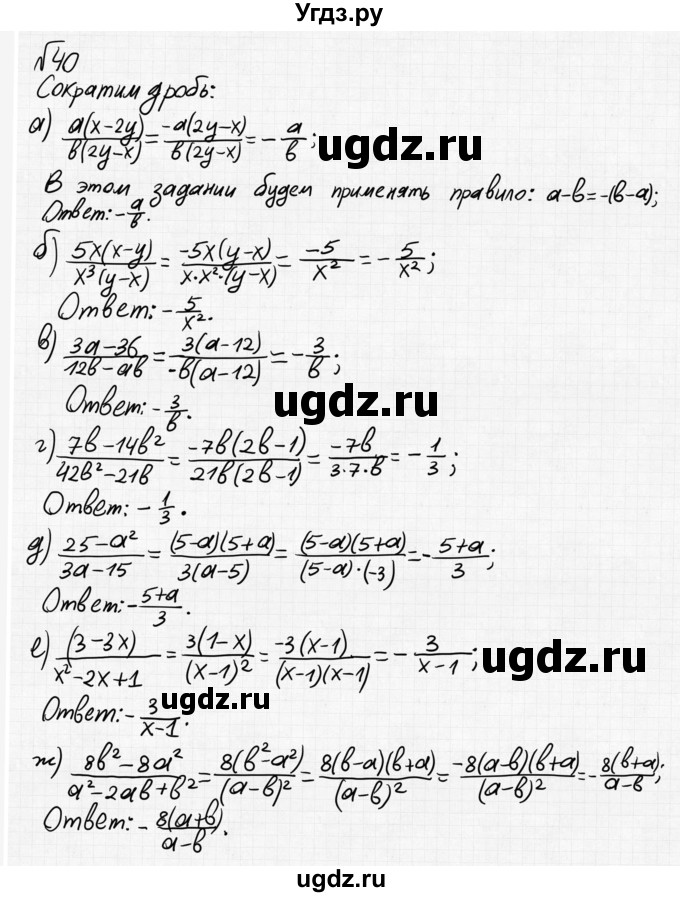 Угдз.ру
№40
Сократим дробь:
а) a(x-2y)/b(2y-x) = -a(2y-x)/b(2y-x) = -a/b;
В этом задании будем применять правило: a-b=-(b-a);
Ответ: -a/b.
б) 5x(x-y)/x³(y-x) = -5x(y-x)/x·x²·(y-x) = -5/x² = -5/x²;
Ответ: -5/x².
в) 3a-36/12b-ab = 3(a-12)/-b(a-12) = -3/b;
Ответ: -3/b.
г) 7b-14b²/42b²-21b = -7b(2b-1)/21b(2b-1) = -7b/3·7·b = -1/3;
Ответ: -1/3.
д) 25-a²/3a-15 = (5-a)(5+a)/3(a-5) = (5-a)(5+a)/(5-a)·(-3) = -5+a/3;
Ответ: -5+a/3.
е) (3-3x)/x²-2x+1 = 3(1-x)/(x-1)² = -3(x-1)/(x-1)(x-1) = -3/x-1;
Ответ: -3/x-1.
ж) 8b²-8a²/a²-2ab+b² = 8(b²-a²)/(a-b)² = 8(b-a)(b+a)/(a-b)² = -8(a-b)(b+a)/(a-b)² = -8(b+a)/a-b;
Ответ: -8(a+b)/a-b.
ugdz.ru
ugdz.ru
ugdz.ru
ugdz.ru
ugdz.ru